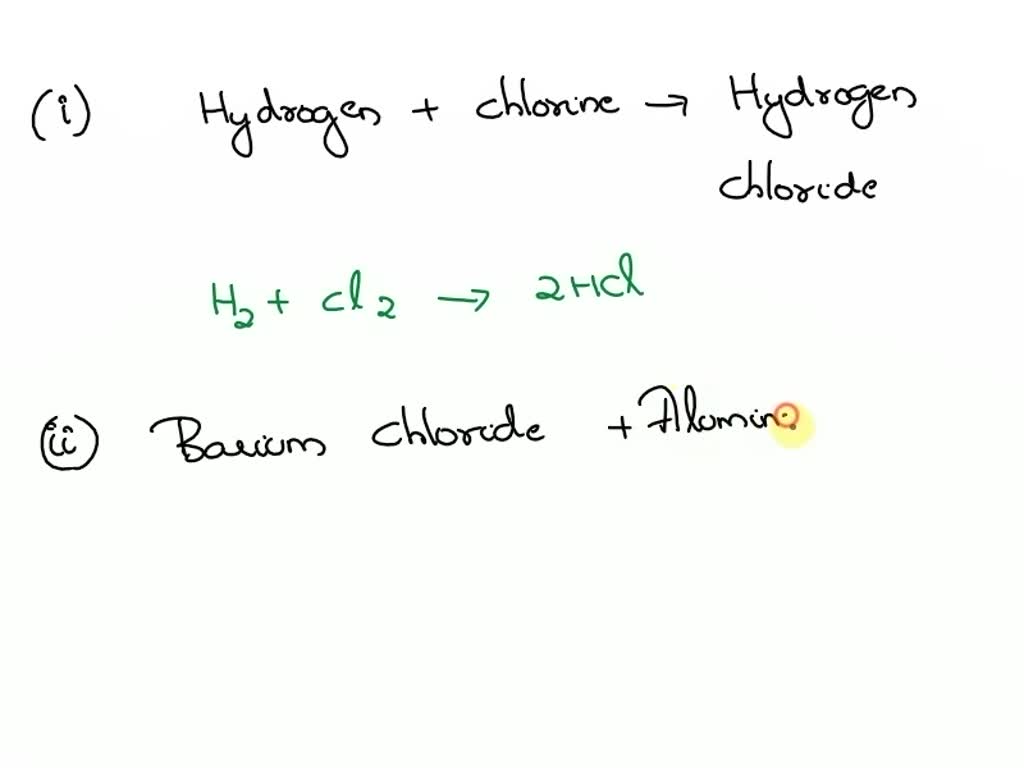 (i) Hydrogen + chlorine → Hydrogen
chloride
H₂ + Cl₂ → 2HCl
(ii) Barium chloride + Alumin